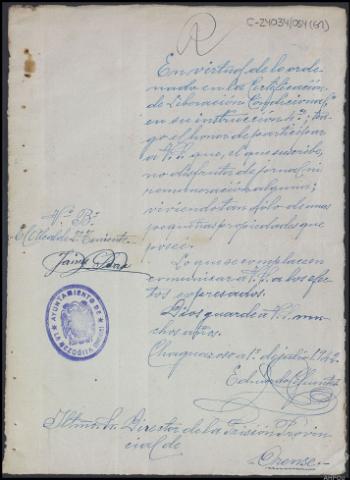 C-24034/064 (61)
En virtud de lo orde-
nado en la Certificación
de Liberación Condicional,
en su instrucción 4ª; ten-
go el honor de participar
a V.S. que, el que suscribe,
no disfruta de jornal, ni
remuneración alguna;
viviendo tan sólo de unas
pequeñas propiedades que
posee.
Lo que se complace en
comunicar a V.S. a los efec-
tos expresados.
Dios guarde a V.S. mu-
chos años.
Chaguazoso a 1º de julio, 1942.
Eduardo
Vº Bº
El Alcalde 2º Teniente
AYUNTAMIENTO DE
Iltmo. Sr. Director de la Prisión Provin-
cial de
Orense.
AHPOU